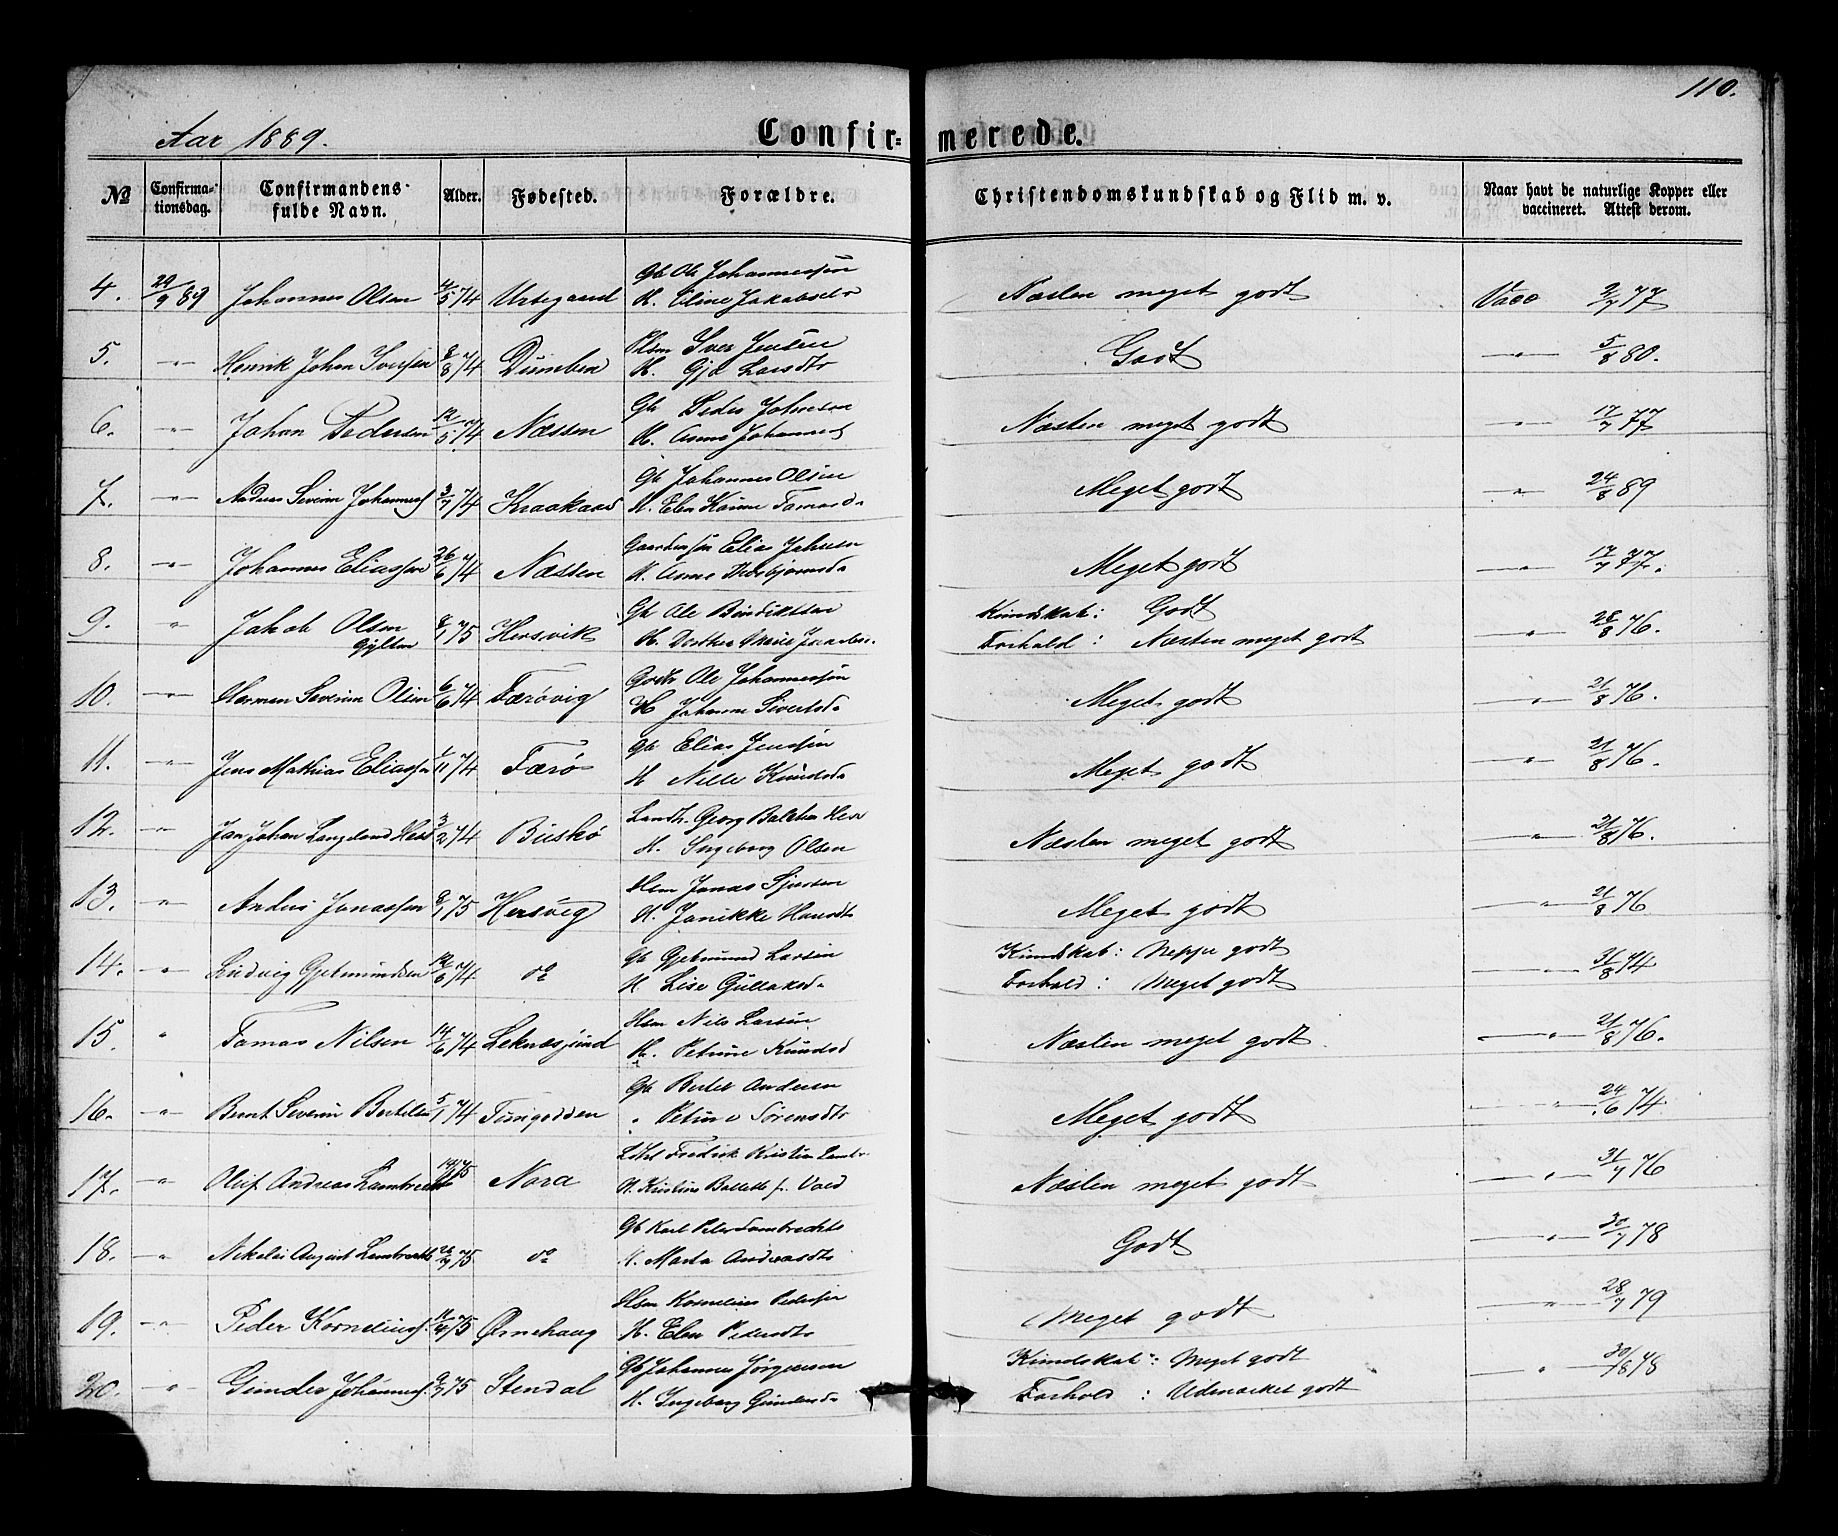 110.
Aar 1889.
Confir= merede.
No Confirma-tionsdag. Confirmandens fulde Navn. Alder. Fødested. Forældre. Christendomskundskab og Flid m. v. Naar havt de naturlige Kopper eller vaccineret. Attest derom.
4. 29/9 89 Johannes Olsen /5 74 Gb Ole Johannessen
H. Eline Jakobsdr Næsten meget godt Vacc 2/7 77
5. -"- Henrik Johan Iversen 8/8 74 Dumben Iver Jensen
H. Larsdtr Godt -"- 5/8 80.
6. -"- Johan Pedersen 12/5 74 Næssen Gb Peder Johnsen
H. Anne Næsten meget godt -"- 17/7 77
7. -"- Andreas Severin Johanness 3/7 74 Kraakaas Gb Johannes Olsen
H. Elen Karine Tomasd Meget godt -"- 24/8 89
8. -"- Johannes Eliassen 26/6 74 Næssen Elias Johnsen
H. Anne Meget godt -"- 17/7 77.
9. " Jakob Olsen
Gylten 8/1 75 Hersvik Gb Ole Bendiktsen
H. Dorthea Kundskab: Godt
Forhold: Næsten meget godt -"- 28/8 76.
10. -"- Herman Severin Olsen 6/6 74 Færøvig Ole Johannessen
H Johanne Sivertsd Meget godt -"- 21/8 76.
11. -"- Jens Mathias Eliassen /11 74 Færø Gb Elias Jenssen
H Nille Knudsd Meget godt -"- 21/8 76.
12. -"- Jan Johan Langeland 3/2 74 Buskø Landh. Georg
H. Ingeborg Olsen Næsten meget godt -"- 21/8 76.
13. -"- Anders Jonassen 8/1 75 Hersvig Hsm Jonas
H. Janikke Hansdtr Meget godt -"- 21/8 76
14. -"- Ludvig Gjetmundsen 12/6 74 do Gb Gjetmund Larsen
H Lise Gullaksd Kundskab: Neppe godt
Forhold: Meget godt -"- 31/8 74
15. " Tomas Nilsen 14/6 74 Leknæssund Hsm Nils Larsen
H. Petrine Knudsd Næsten meget godt -"- 21/8 76.
16. -"- Bernt Severin Bertelsen 5/1 74 Tungodden Gb Bertel Andersen
" Petrine Sørensdtr Meget godt -"- 24/6 74
17. -"- Oluf Andreas 75 Nora Fredrik Kristian
H. Kristine Næsten meget godt -"- 31/7 76
18. -"- Nikolai August Lambrechts 75 do Gb Karl Peter Lambrechts
H. Marta Andreasdtr Godt -"- 30/7 78
19. -"- Peder Korneliuss. 75 Ørnehaug Hsm Kornelius Pedersen
H. Elen Pedersdtr Meget godt -"- 28/7 79
20. -"- Gunder Johanness. 75 Stendal Gb Johannes Jørgensen
H. Ingeborg Gundersd Kundskab: Meget godt
Forhold: Udmærket godt " 30/8 78